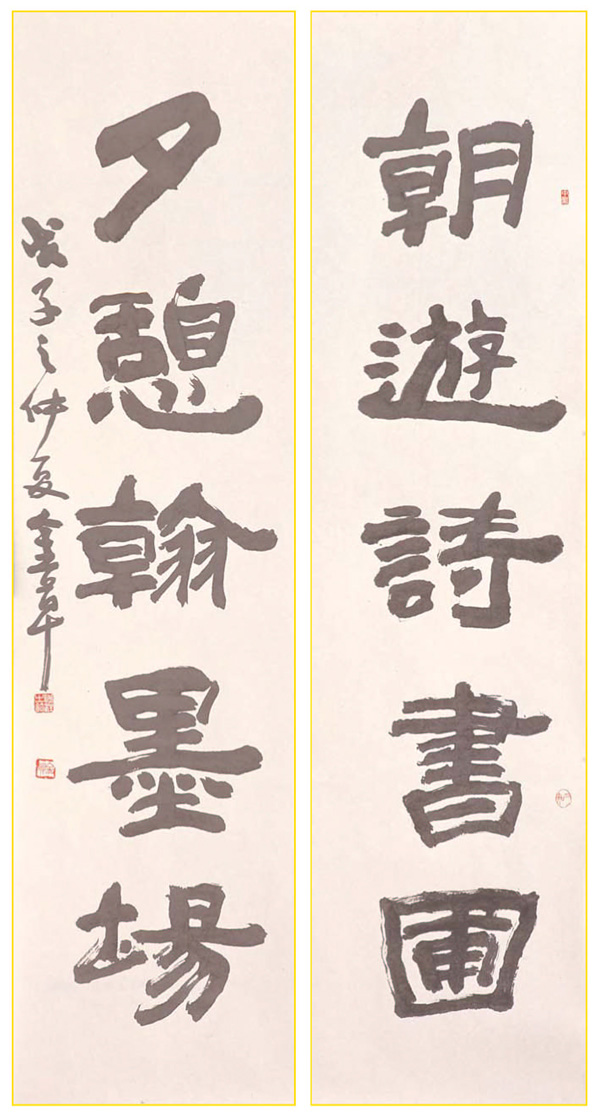 朝遊詩書圃
夕憩翰墨場
戊子之仲夏